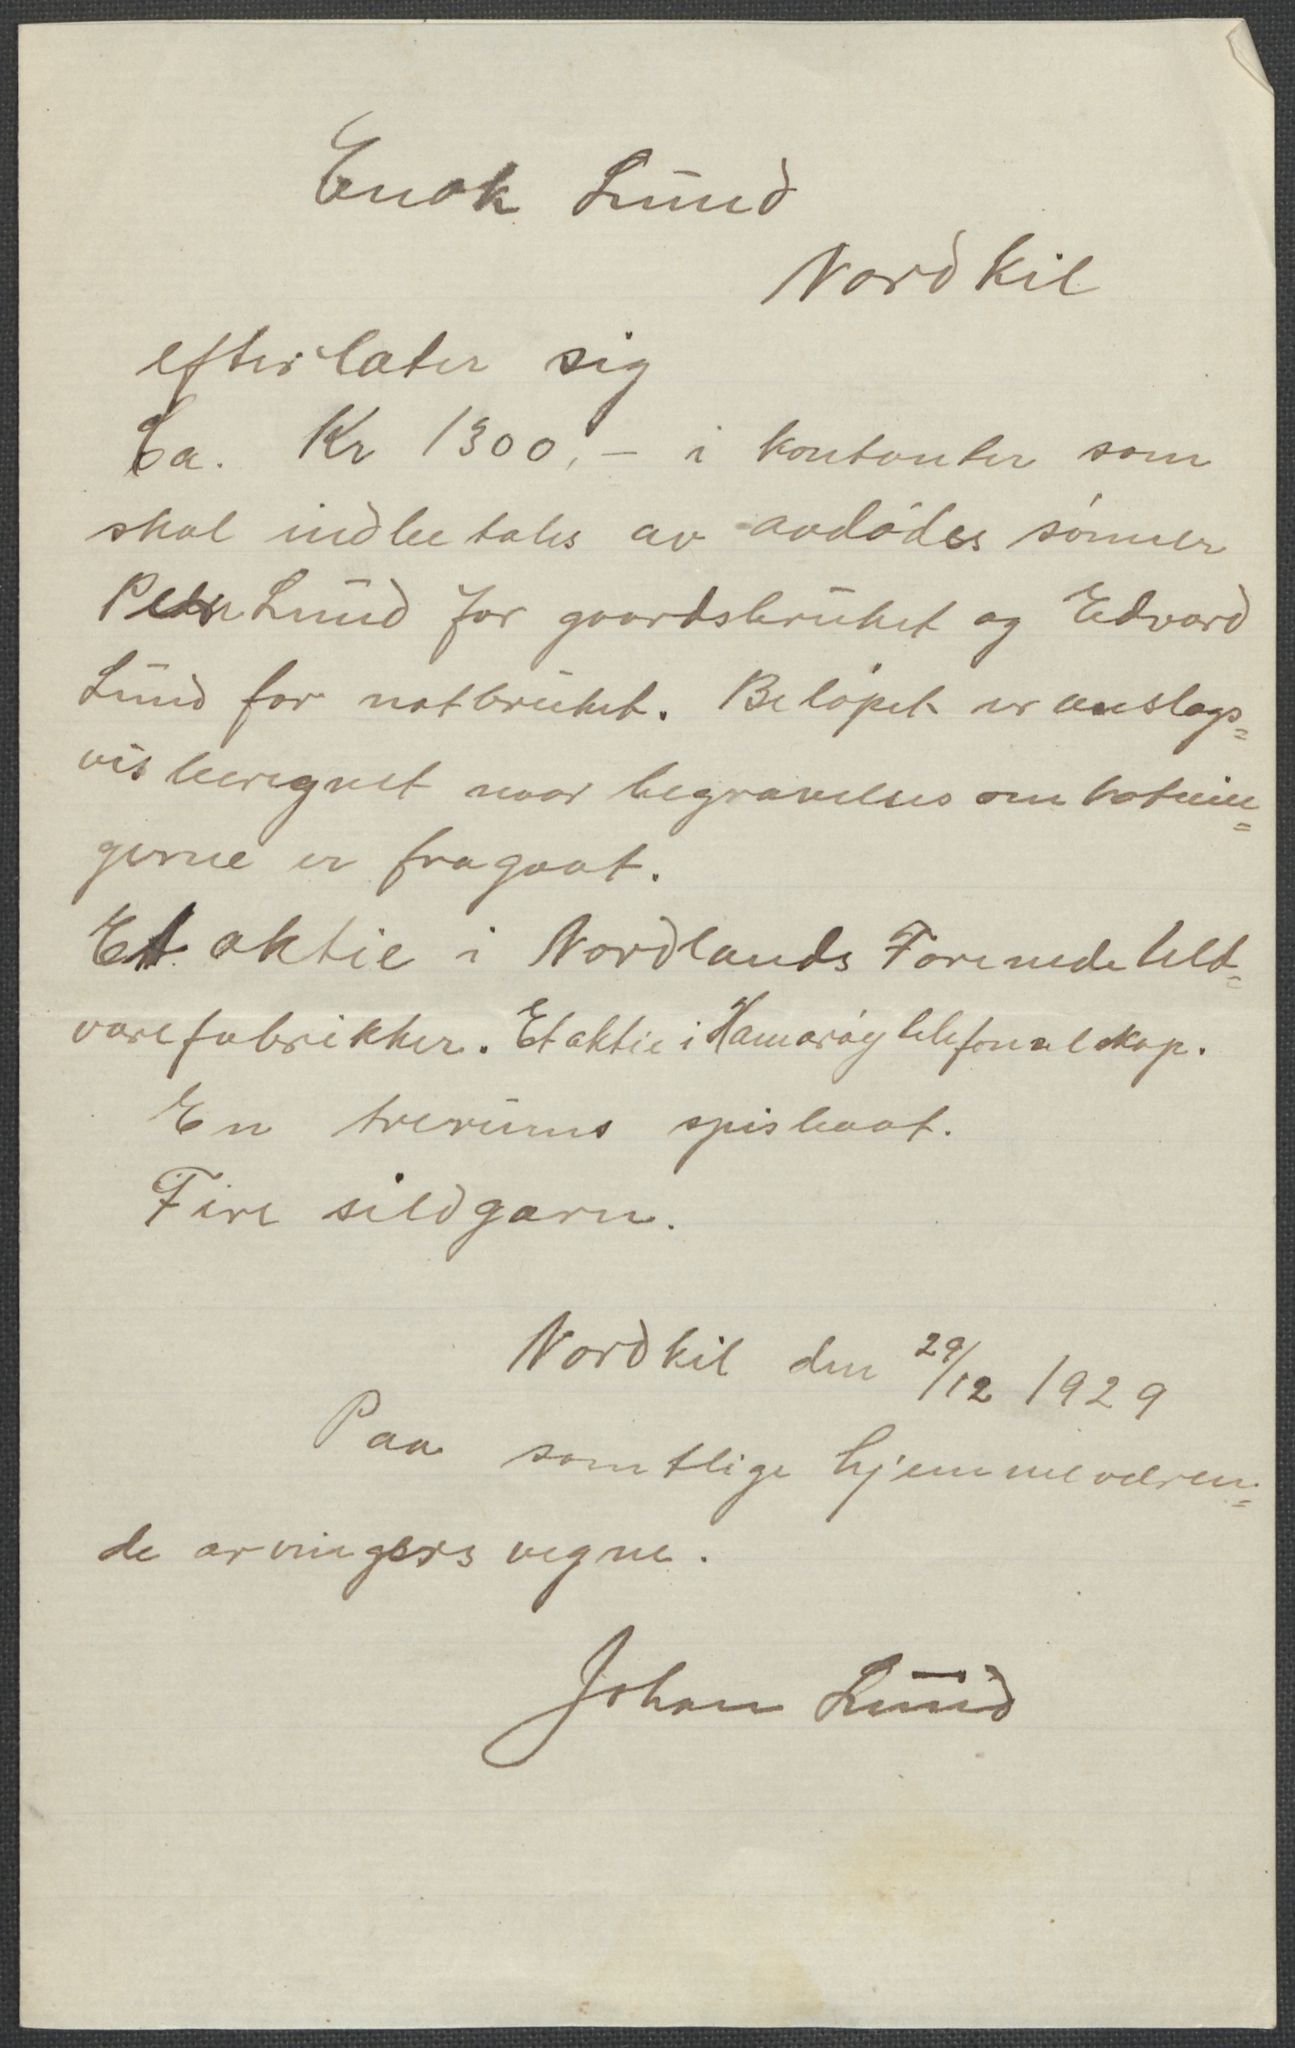 Enok Lund
Nordkil
efterlater sig
Ca. Kr 1300,- i kontanter som
skal indbetales av avdødes sønner
Peder Lund for gaardsbruket og Edvard
Lund for notbruket. Beløpet er anslags=
vis beregnet naar begravelses omkostnin=
gerne er fragaat.
Et aktie i Nordlands Forenede Uld=
varefabrikker. Et aktie i Hamarøy telefonselskap.
En trerums spisbaat.
Fire sildgarn.
Nordkil den 29/12 1929
Paa samtlige hjemmeværen=
de arvingers vegne.
Johan Lund